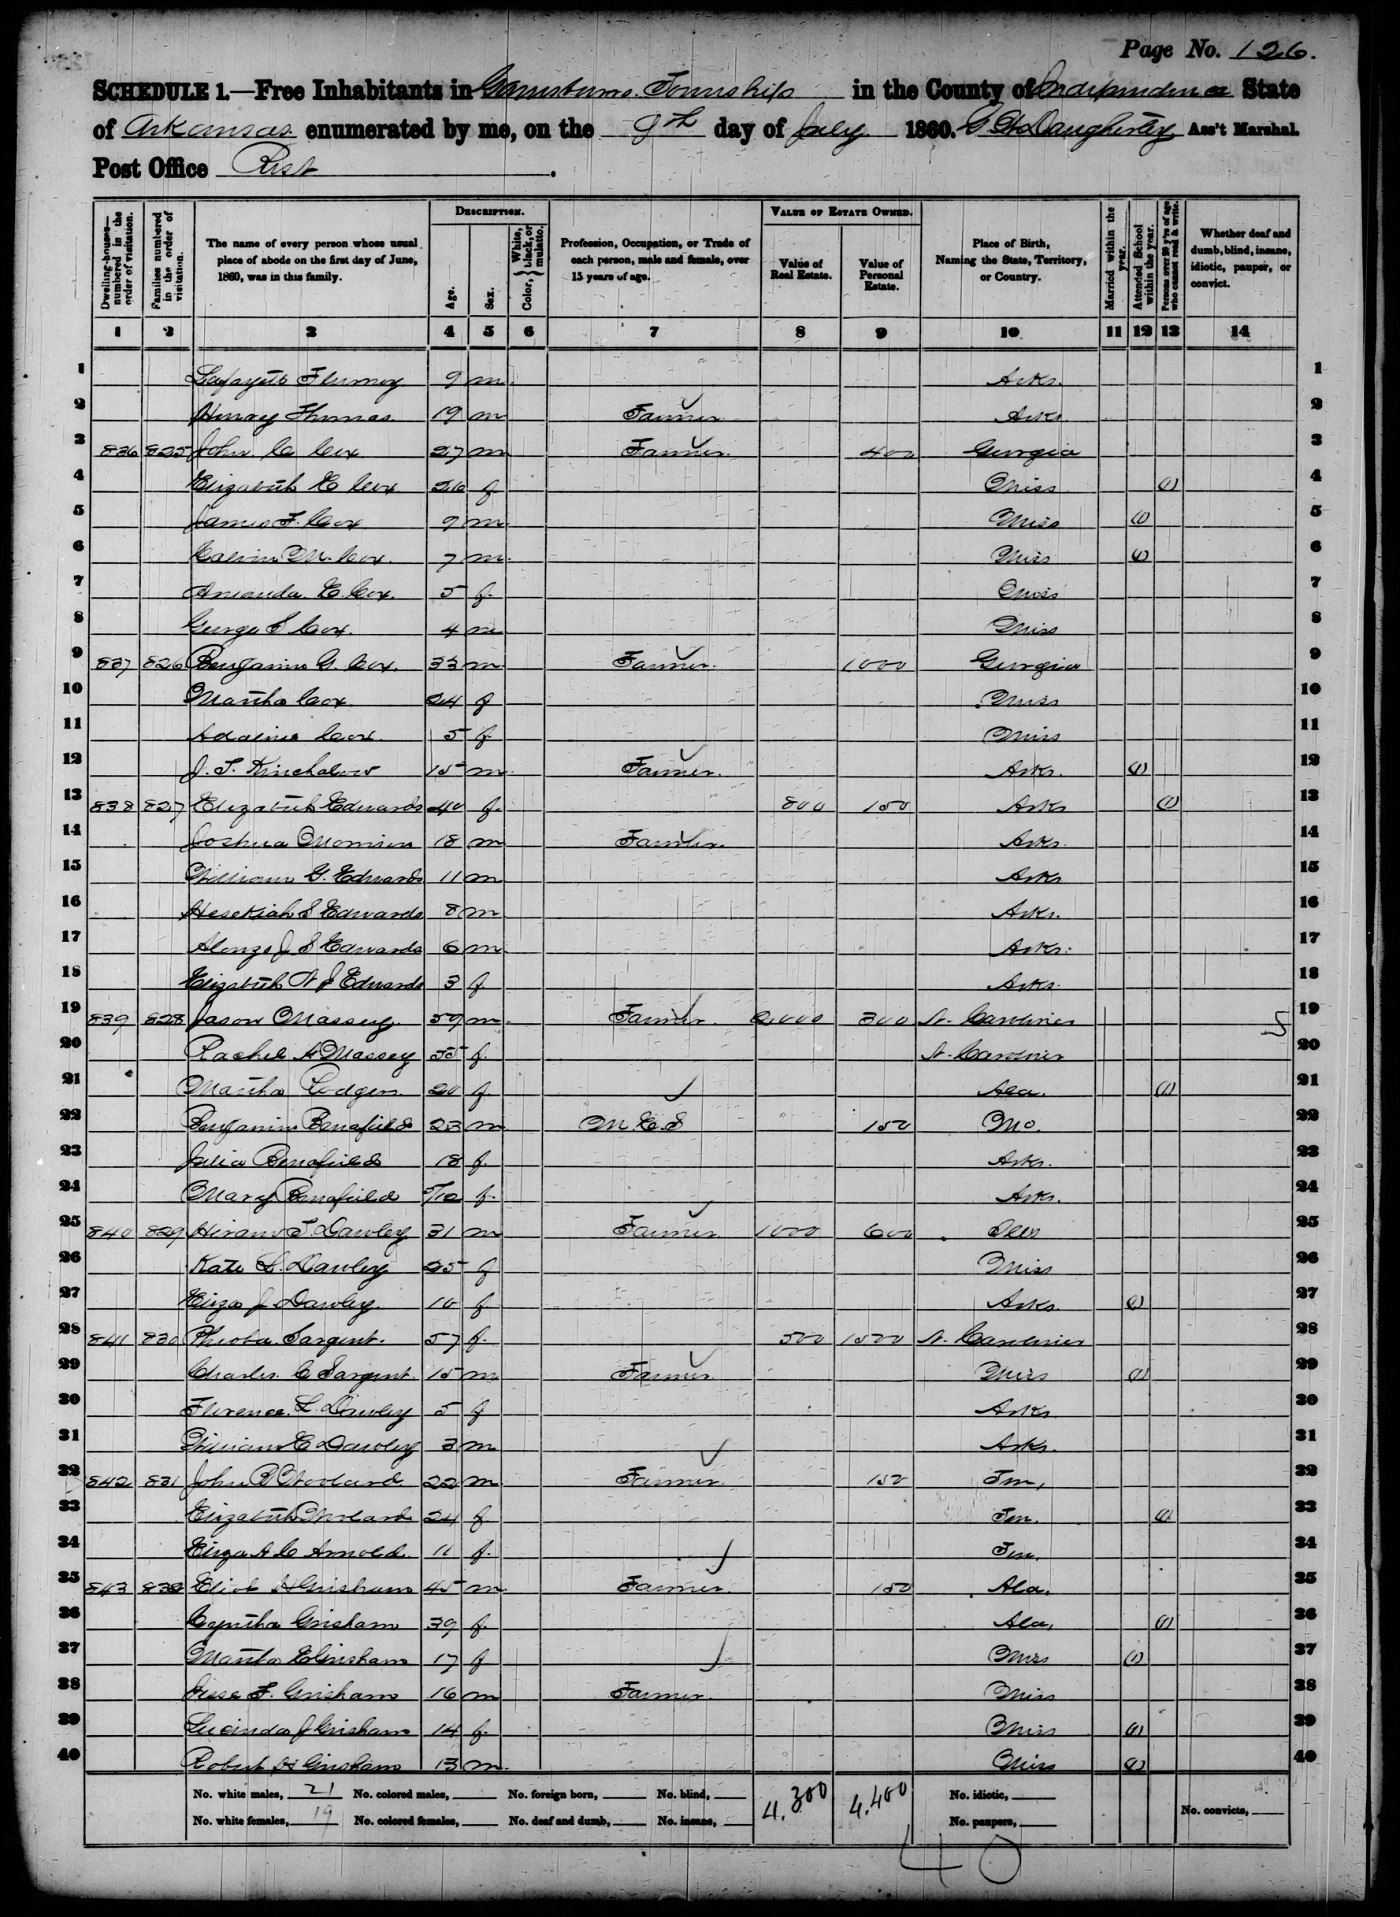 Page No. 126.
SCHEDULE 1.—Free Inhabitants in Township in the County of Independence State
of Arkansas enumerated by me, on the 9th day of July 1860. Daugherty Ass't Marshal.
Post Office
Dwelling-houses—numbered in the order of visitation.
Families numbered in the order of visitation.
The name of every person whose usual place of abode on the first day of June, 1860, was in this family.
DESCRIPTION.
Age.
Sex.
Color, { White, black, or mulatto.
Profession, Occupation, or Trade of each person, male and female, over 15 years of age.
VALUE OF ESTATE OWNED.
Value of Real Estate.
Value of Personal Estate.
Place of Birth, Naming the State, Territory, or Country.
Married within the year.
Attended School within the year.
Persons over 20 y'rs of age who cannot read & write.
Whether deaf and dumb, blind, insane, idiotic, pauper, or convict.
1 2 3 4 5 6 7 8 9 10 11 12 13 14
1 Lafayett Flurnoy 9 m Arks. 1
2 Henry Thomas 19 m Farmer Arks 2
3 836 825 John C Cox 27 m Farmer 400 Georgia 3
4 Elizabeth E Cox 26 f Miss (1) 4
5 James F. Cox 9 m Miss (1) 5
6 Calvin M. Cox. 7 m. Miss (1) 6
7 Amanda E. Cox. 5 f. Miss 7
8 George S Cox. 4 m Miss 8
9 837 826 Benjamin G. Cox. 33 m Farmer. 1000 Georgia 9
10 Martha Cox 24 f Miss 10
11 Adaline Cox. 5 f. Miss 11
12 J. T. Kinchalow 15 m. Farmer. Arks. (1) 12
13 838 827 Elizabeth Edwards 40 f. 800 150 Arks (1) 13
14 Joshua Morrison 18 m Farmer. Arks. 14
15 William G. Edwards 11 m Arks 15
16 Hesekiah S Edwards 8 m Arks. 16
17 Alonzo J S Edwards 6 m Arks. 17
18 Elizabeth N J Edwards 3 f Arks. 18
19 839 828 Jason Massey. 59 m Farmer. 2000 300 N. Carolinia 19
20 Rachel A Massey 55 f. N. Carolinia 20
21 Martha Rodgers 20 f. Ala. (1) 21
22 Benjamin Benafield 23 m M. E. S 150 Mo. 22
23 Julia Benafield 18 f. Arks. 23
24 Mary Benafield f. Arks. 24
25 840 829 Hiram T. Dawley 31 m Farmer 1000 600 Ills 25
26 Kate L. Dawley 25 f Miss 26
27 Eliza J Dawley. 10 f Arks (1) 27
28 841 830 Pheoba Sargent. 57 f. 500 1500 N. Carolinia 28
29 Charles C Sargent. 15 m Farmer. Miss (1) 29
30 Florence. L. Dawley 5 f Arks. 30
31 William E Dawley 3 m Arks. 31
32 842 831 John B Woolard. 22 m Farmer. 150 Ten, 32
33 Elizabeth Woolard 24 f Ten. (1) 33
34 Eliza A C Arnold. 11 f. Ten. 34
35 843 832 Eliot H Grisham 45 m Farmer. 150 Ala. 35
36 Cyntha Grisham 39 f. Ala, (1) 36
37 Martha E Grisham 17 f Miss (1) 37
38 Jesse F. Grisham 16 m Farmer. Miss 38
39 Lucinda J Grisham 14 f. Miss (1) 39
40 Robert H Grisham 13 m. Miss (1) 40
No. white males, 21 No. colored males, No. foreign born, No. blind, 4,300 4,400 No. idiotic,
No. white females, 19 No. colored females, No. deaf and dumb, No. insane, No. paupers, No. convicts,
40